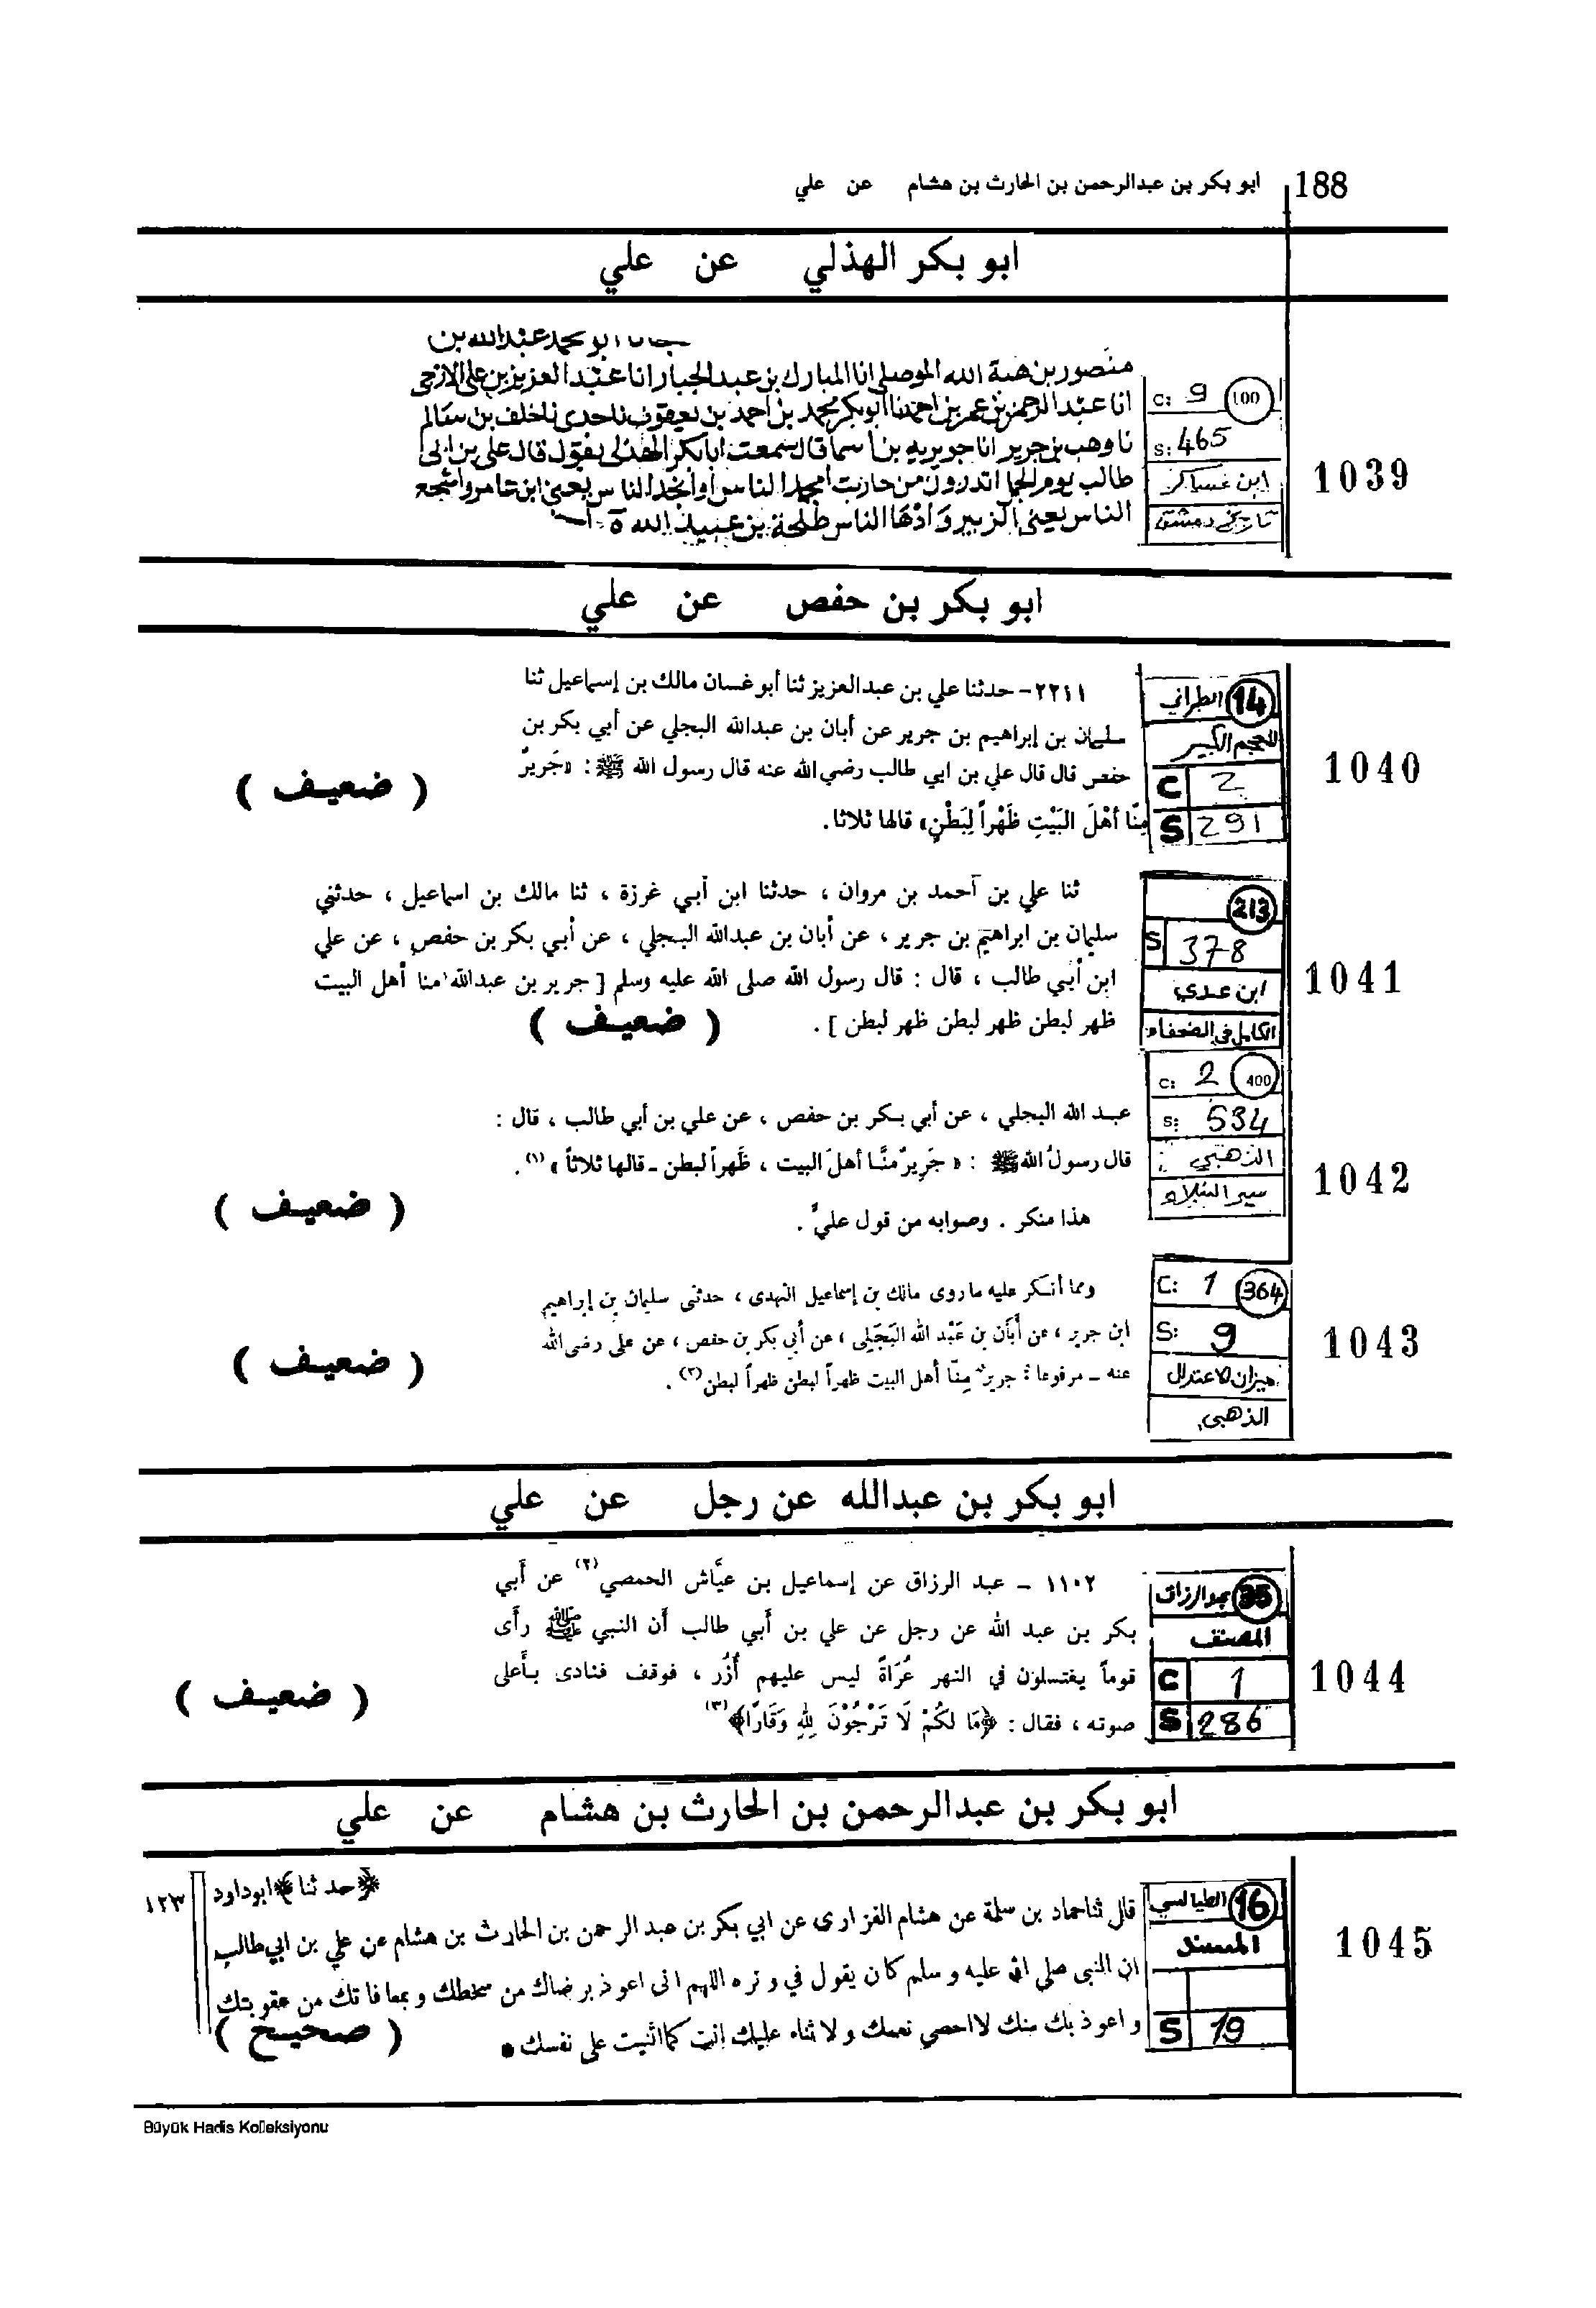 ابو بكر بن عبدالرحمن بن الحارث بن هشام عن علي 188
ابو بكر الهذلي عن علي
ابو محمد عبدالله بن
منصور بن هبة الله الموصلي انا المبارك بن عبد الجبار انا عبد العزيز بن علي الازجي
انا عبد الرحمن بن عمر بن احمد نا ابو بكر محمد بن احمد بن يعقوب نا جدي نا خلف بن سالم
نا وهب بن جرير انا جويريه بن اسما قال سمعت ابا بكر الهذلي يقول قال علي بن ابي
طالب يوم الجمل اتدرون من حاربت امجد الناس او انجد الناس يعني ابن عامر واشجع
الناس يعني الزبير وادها الناس طلحة بن عبيد الله
C: 9 100
S: 465
ابن عساكر
تاريخ دمشق
1039
ابو بكر بن حفص عن علي
٢٢١١- حدثنا علي بن عبدالعزيز ثنا أبو غسان مالك بن إسماعيل ثنا
سليمان بن إبراهيم بن جرير عن أبان بن عبدالله البجلي عن أبي بكر بن
حفص قال قال علي بن ابي طالب رضي الله عنه قال رسول الله ﷺ : «جَريرٌ
مِنّا أهْلَ البَيْتِ ظَهْراً لِبَطْنٍ» قالها ثلاثا.
( ضعيف )
الطبراني 14
المعجم الكبير
C 2
S 291
1040
ثنا علي بن أحمد بن مروان ، حدثنا ابن أبي غرزة ، ثنا مالك بن اسماعيل ، حدثني
سليمان بن ابراهيم بن جرير ، عن أبان بن عبدالله البجلي ، عن أبي بكر بن حفص ، عن علي
ابن أبي طالب ، قال : قال رسول الله صلى الله عليه وسلم [ جرير بن عبدالله منا أهل البيت
ظهر لبطن ظهر لبطن ظهر لبطن ] .
( ضعيف )
213
S 378
ابن عدي
الكامل في الضعفاء
1041
عبد الله البجلي ، عن أبي بكر بن حفص ، عن علي بن أبي طالب ، قال :
قال رسولُ الله ﷺ : « جَرِيرٌ منَّا أهلَ البيت ، ظَهراً لبطن ـ قالها ثلاثاً » (١) .
هذا منكر . وصوابه من قول عليّ .
( ضعيف )
C: 2 400
S: 534
الذهبي
سير النبلاء
1042
ومما أنكر عليه ما روى مالك بن إسماعيل النهدى ، حدثنى سليمان بن إبراهيم
ابن جرير ، عن أَبَان بن عَبْد الله البَجَلِى ، عن أبي بكر بن حفص ، عن على رضى الله
عنه ــ مرفوعا : جرير مِنّا أهل البيت ظهراً لبطن ظهراً لبطن (٢) .
( ضعيف )
C: 1 364
S: 9
ميزان الاعتدال
الذهبي
1043
ابو بكر بن عبدالله عن رجل عن علي
١١٠٢ ـ عبد الرزاق عن إسماعيل بن عيَّاش الحمصي (٢) عن أبي
بكر بن عبد الله عن رجل عن علي بن أبي طالب أن النبي ﷺ رأى
قوماً يغتسلون في النهر عُرَاةً ليس عليهم أُزُر ، فوقف فنادى بأعلى
صوته ، فقال : ﴿مَا لَكُمْ لَا تَرْجُوْنَ لِلّٰهِ وَقَارًا﴾ (٣)
( ضعيف )
عبد الرزاق 35
المصنف
C 1
S 286
1044
ابو بكر بن عبدالرحمن بن الحارث بن هشام عن علي
١٢٣ ﴿حدثنا﴾ ابو داود
قال ثنا حماد بن سلمة عن هشام الفزارى عن ابي بكر بن عبد الرحمن بن الحارث بن هشام عن علي بن ابي طالب
ان النبي صلى الله عليه وسلم كان يقول في وتره اللهم انى اعوذ برضاك من سخطك وبمعافاتك من عقوبتك
واعوذ بك منك لا احصي نعمك ولا ثناء عليك انت كما اثنيت على نفسك •
( صحيح )
الطيالسي 16
المسند
S 19
1045
Büyük Hadis Kolleksiyonu